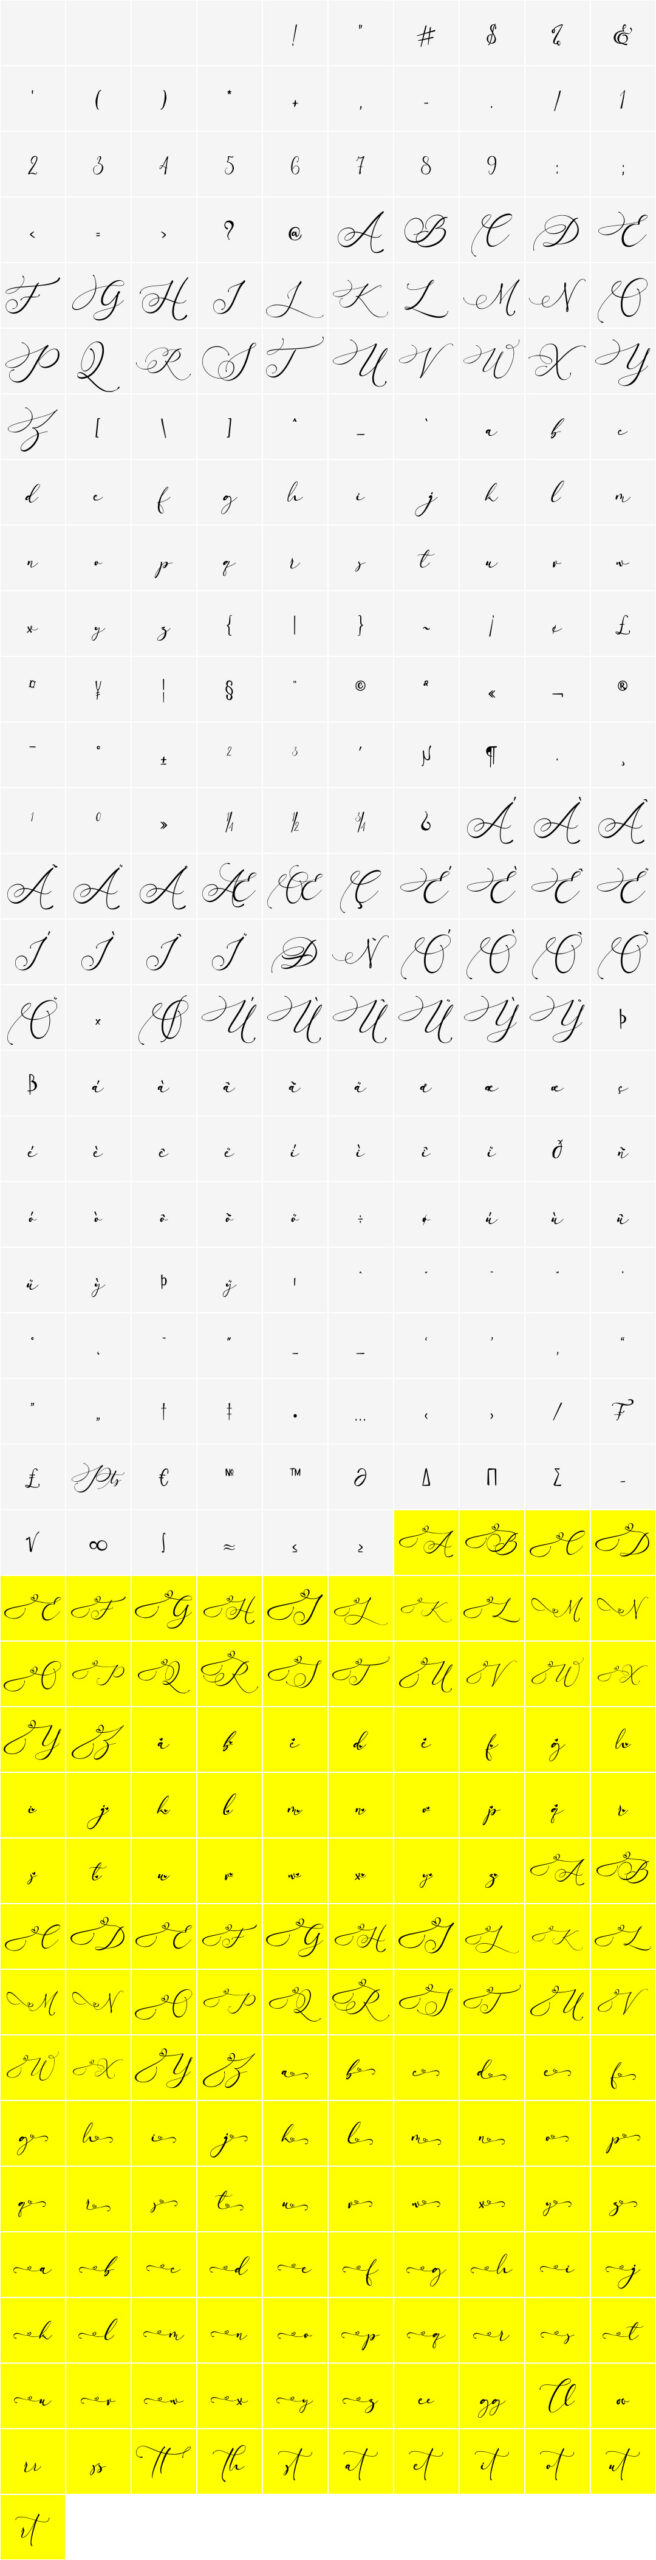 ! " # $ % &
' ( ) * + , - . / 1
2 3 4 5 6 7 8 9 : ;
< = > ? @ A B C D E
F G H I J K L M N O
P Q R S T U V W X Y
Z [ \ ] ^ _ ` a b c
d e f g h i j k l m
n o p q r s t u v w
x y z { | } ~ ¡ ¢ £
¤ ¥ ¦ § ¨ © ª « ¬ ®
¯ ° ± 2 3 ´ µ ¶ · ¸
1 0 » 1/4 1/2 3/4 ¿ Á À Â
Ã Ä Å Æ Œ Ç É È Ê Ë
Í Ì Î Ï Ð Ñ Ó Ò Ô Õ
Ö × Ø Ú Ù Û Ü Ý Ÿ Þ
ß á à â ã ä å æ œ ç
é è ê ë í ì î ï ð ñ
ó ò ô õ ö ÷ ø ú ù û
ü ý þ ÿ ı
– — ‘ ’ ‚ “
” „ † ‡ • … ‹ › / F
£ Pts € № ™ ∂ ∆ ∏ ∑ −
√ ∞ ∫ ≈ ≤ ≥ A B C D
E F G H I J K L M N
O P Q R S T U V W X
Y Z a b c d e f g h
i j k l m n o p q r
s t u v w x y z A B
C D E F G H I J K L
M N O P Q R S T U V
W X Y Z a b c d e f
g h i j k l m n o p
q r s t u v w x y z
a b c d e f g h i j
k l m n o p q r s t
u v w x y z ee gg Cl oo
rr ss Tt th st at et it ot ut
rt